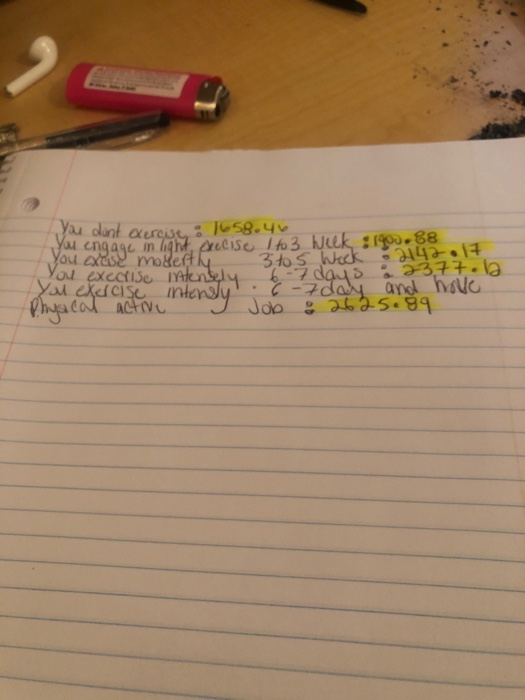 You dont exercise : 1658.46
You engage in light execise 1 to 3 Week : 1900.88
You excise moderftly 3 to 5 Week : 2142.17
You execrise intensely 6-7 days : 2377.12
You exercise intensly . 6-7 day and have
Physical active Job : 2625.89